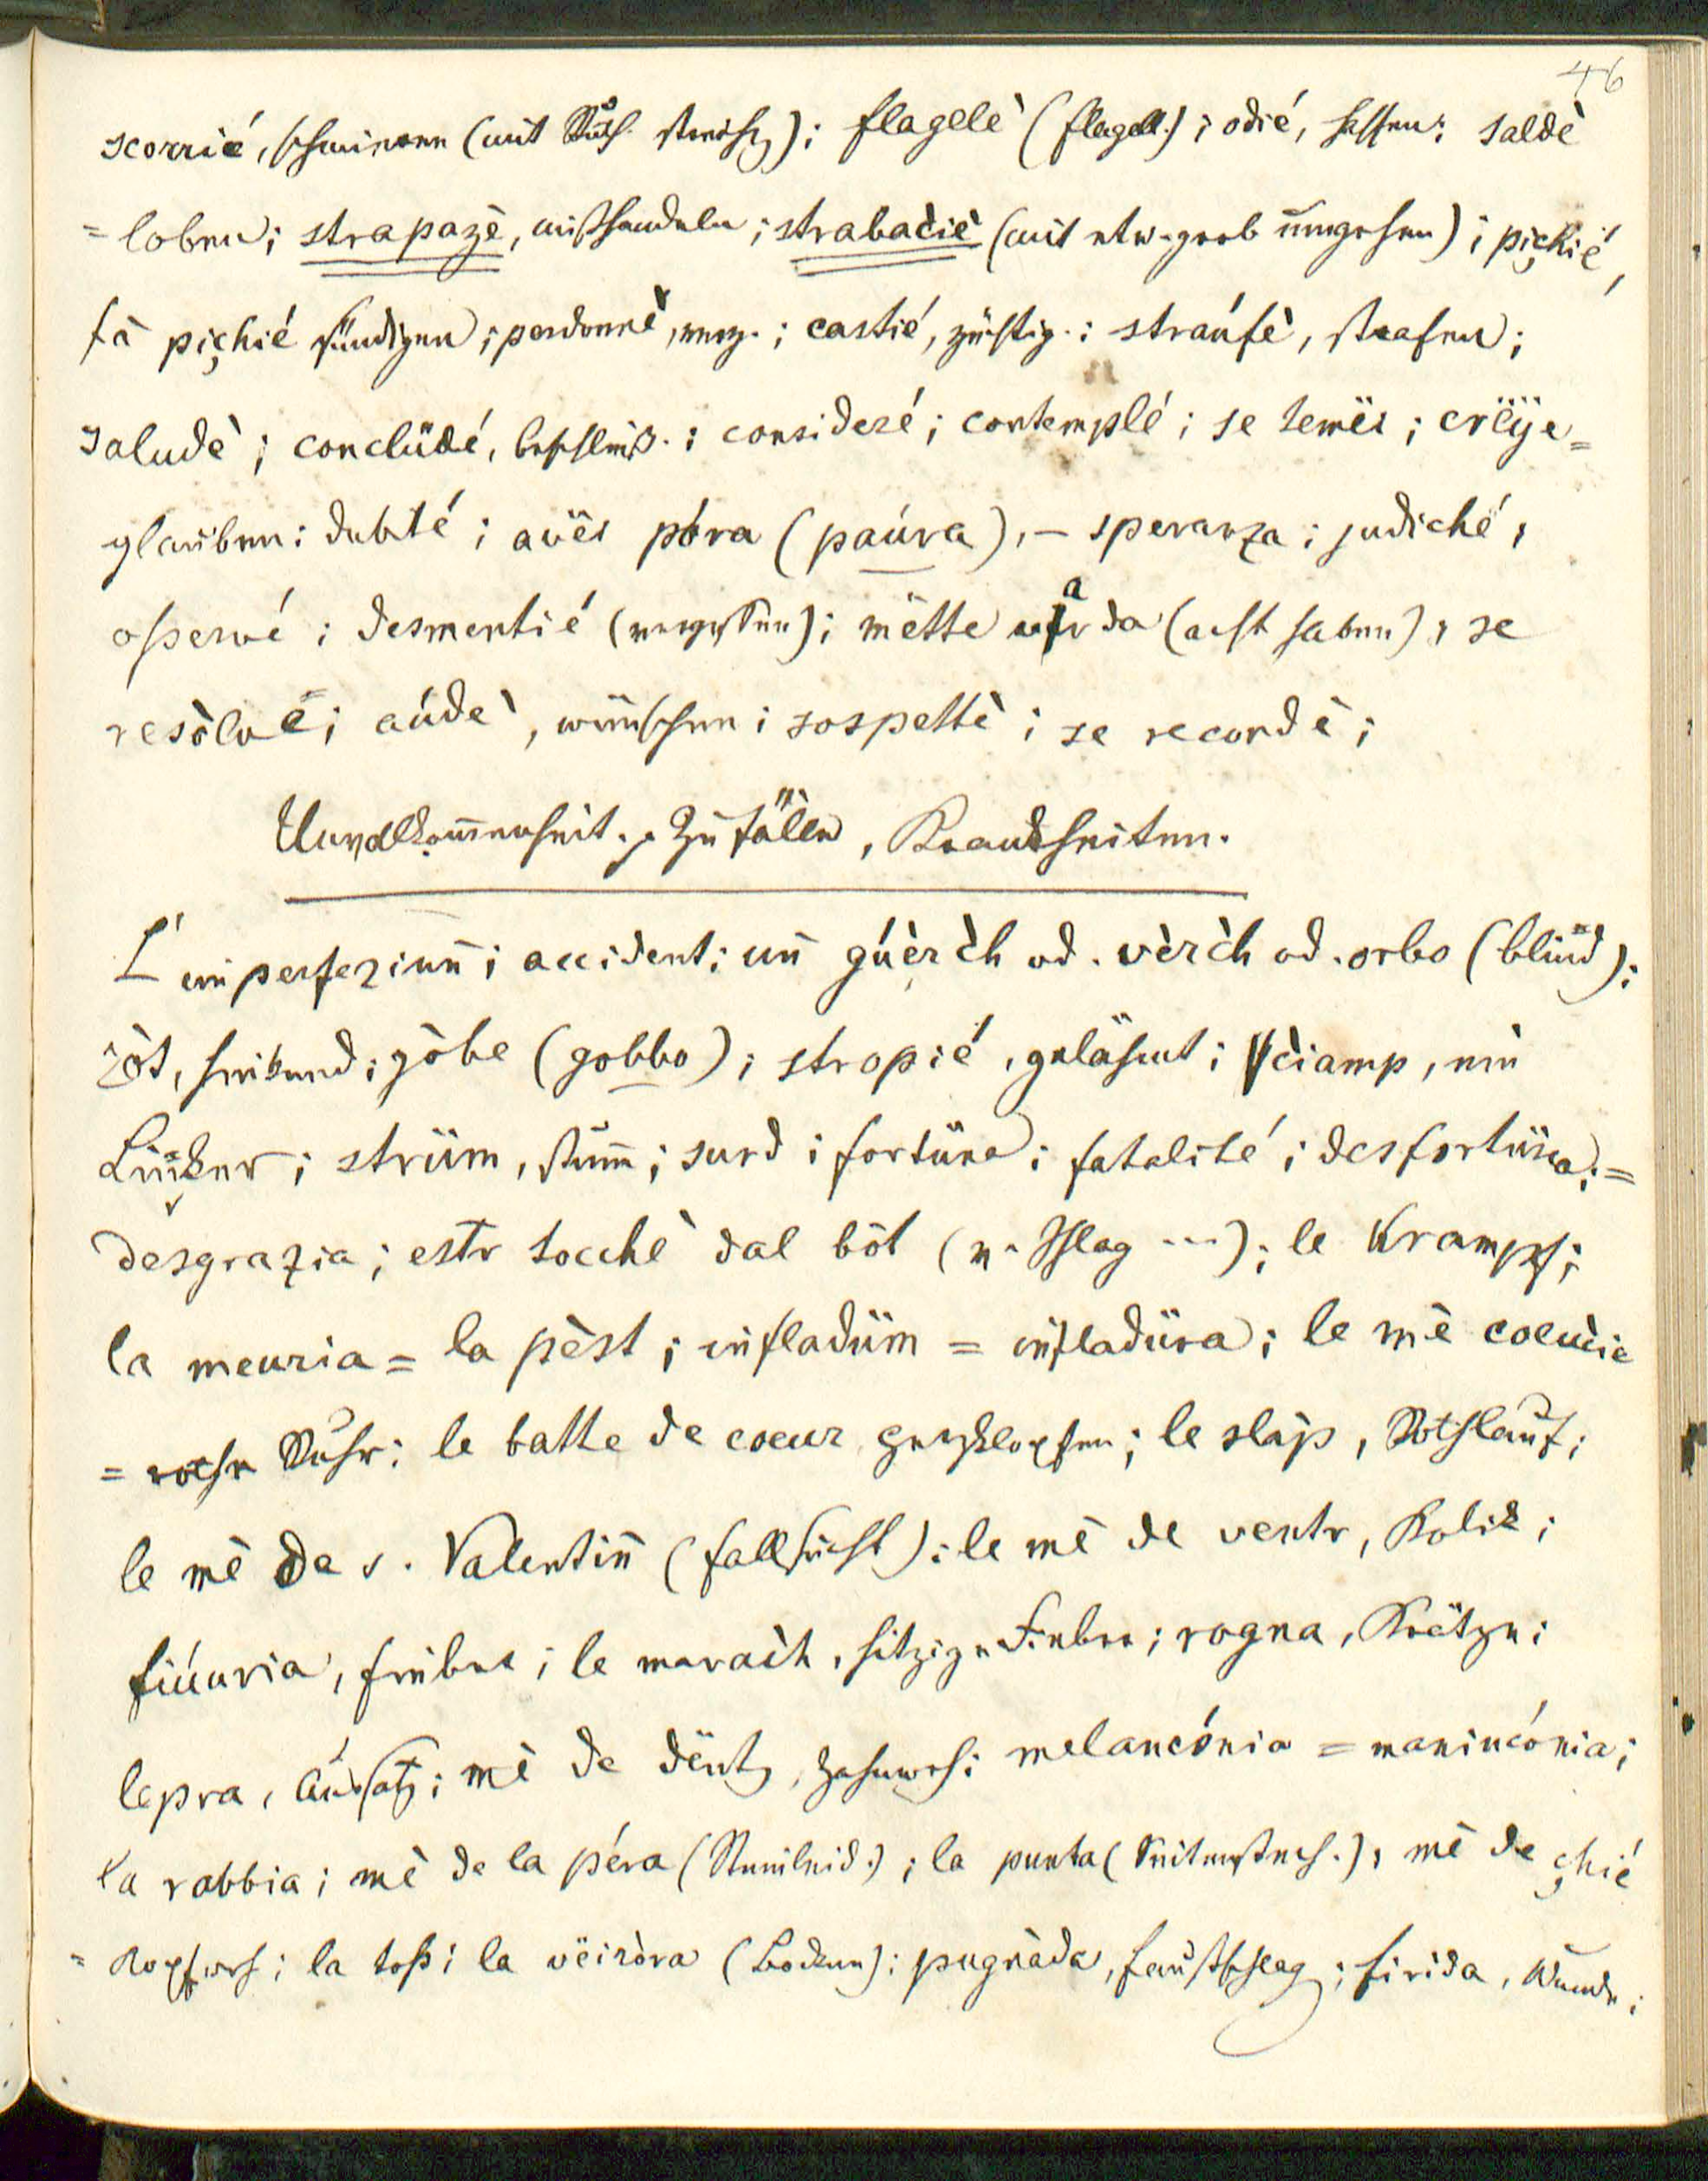 46
scorrié, schmieren (mit Ruth. streich); flagelè (flagell.); odié, hassen; saldè
= loben; strapazè, misshandeln; strabacìè (mit etw. grob umgehen); pichié,
fà pichié sündigen; perdonnè, verz.; castié, züchtig.; straúfè, strafen;
saludè; conclüdé, beschließ.; consideré; contemplé; se temëi; crëÿe=
glauben; dubité; avëi póra (paúra), – speranza; judiché,
osservé; desmentié (vergessen); mëtte averda (acht haben), se
resòlve; aúdè, wünschen; sospettè; se recordè;
Unvollkommenheit. Zufälle, Krankheiten.
L' imperfeziun; accident; un gúèrch od. vèrch od. orbo (blind);
zòt, hinkend; gòbe (gobbo); stropié, gelähmt; ciamp, ein
Linker; strüm, stumm; surd; fortüna; fatalité; desfortüna; =
desgrazia; estr tocchè dal bòt (v. Schlag ...); le Krampf;
la meuria = la pèst; infladüm = infladüra; le mè coencìe
= rothe Ruhr; le batte de coeur Herzklopfen; le slàp, Rothlauf;
le mè da s. Valentin (Fallsucht); le mè de ventr, Kolik;
fiúuria, Fieber; le marach, hitzige Fieber; rogna, Krätze;
lepra, Aussatz; mè de dëntg, Zahnweh; melancónia = maninconia;
la rabbia; mè de la péra (Steinleid.); la punta (Seitenstech.), mè de chié
= Kopfweh; la toss; la vëiròra (Bocken); pugnàda, Faustschlag; firida, Wunde;